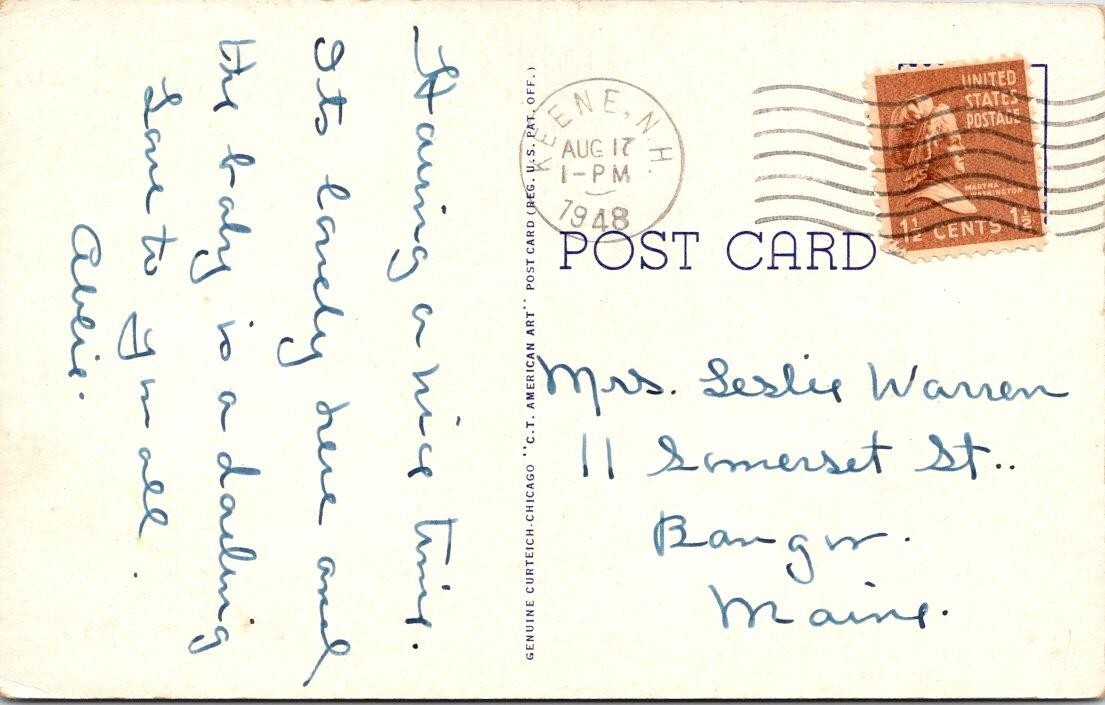 Having a nice time.
Its lovely here and
the baby is a darling
Love to you all.
GENUINE CURTEICH-CHICAGO "C.T. AMERICAN ART" POST CARD (REG. U.S. PAT. OFF.)
KEENE, N.H.
AUG 17
1-PM
1948
UNITED
STATES
POSTAGE
MARTHA
WASHINGTON
1½ CENTS 1½
POST CARD
Mrs. Leslie Warren
11 Somerset St..
Bangor.
Maine.